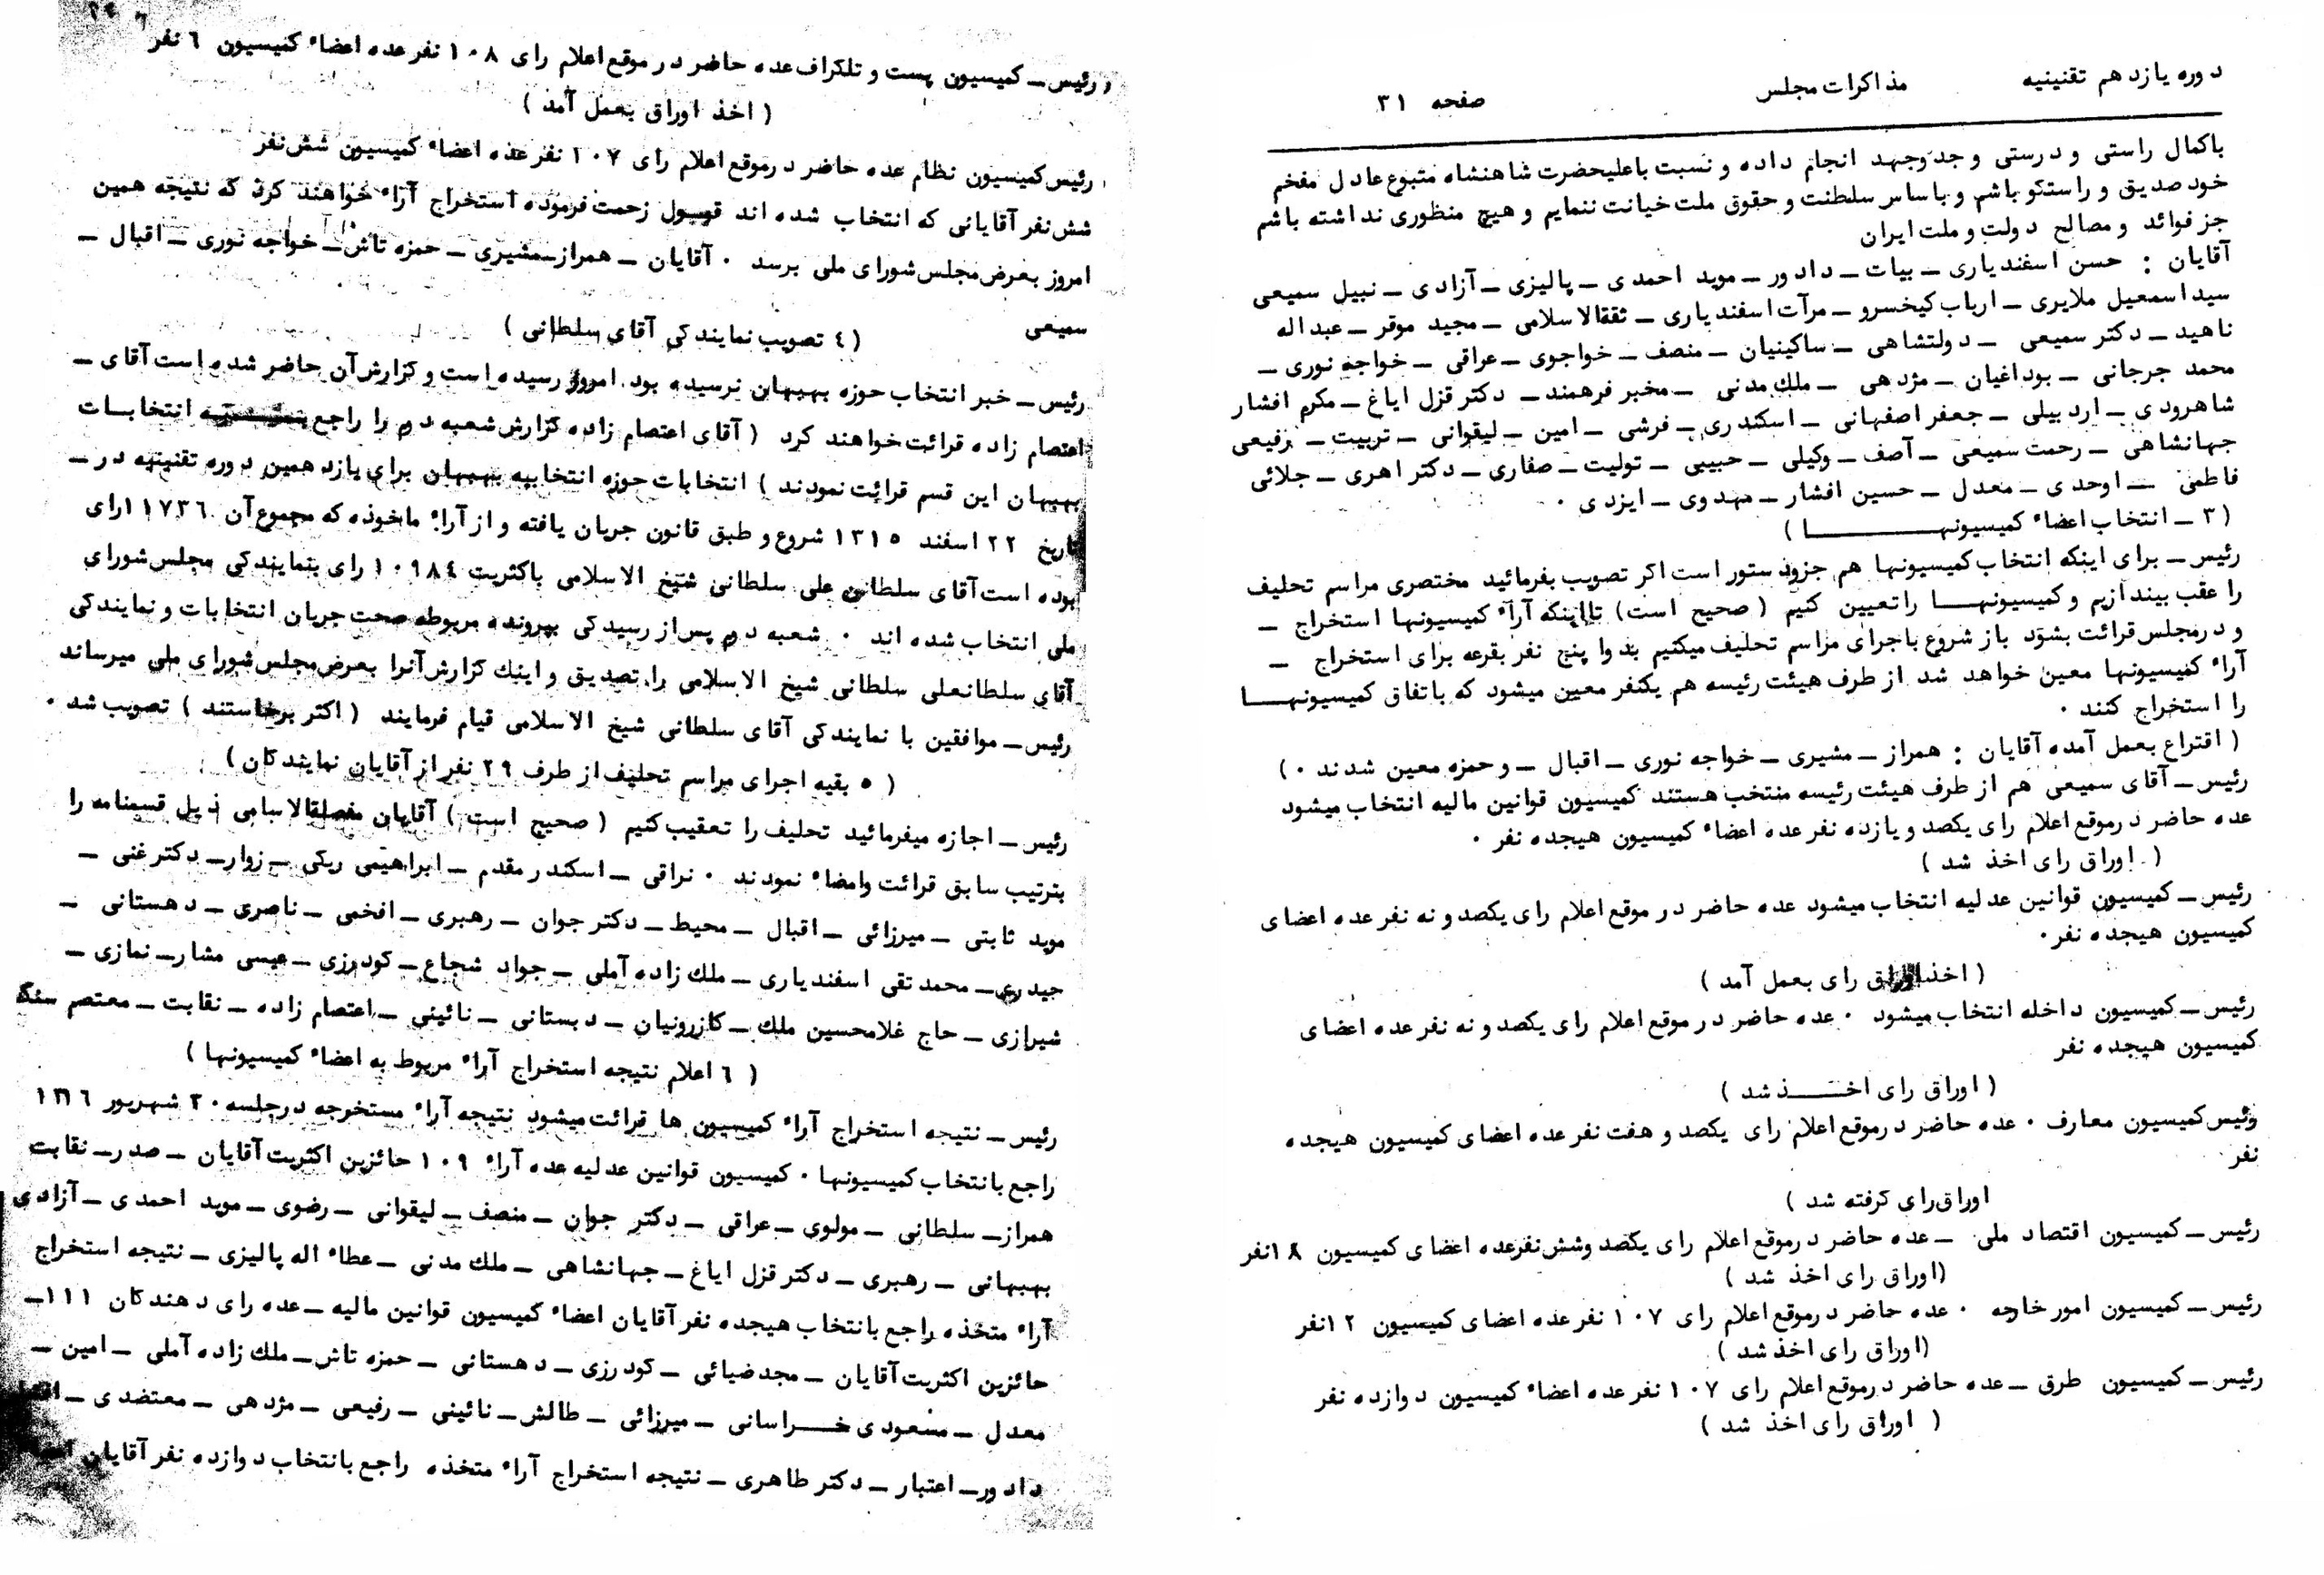 دوره یازدهم تقنینیه مذاکرات مجلس صفحه ۳۱
باکمال راستی و درستی و جدوجهد انجام داده و نسبت باعلیحضرت شاهنشاه متبوع عادل مفخم
خود صدیق و راستگو باشم و باساس سلطنت و حقوق ملت خیانت ننمایم و هیچ منظوری نداشته باشم
جز فوائد و مصالح دولت و ملت ایران
آقایان : حسن اسفندیاری ـ بیات ـ دادور ـ موید احمدی ـ پالیزی ـ آزادی ـ نبیل سمیعی
سید اسمعیل ملایری ـ ارباب کیخسرو ـ مرآت اسفندیاری ـ ثقةالاسلامی ـ مجید موقر ـ عبداله
ناهید ـ دکتر سمیعی ـ دولتشاهی ـ ساکینیان ـ منصف ـ خواجوی ـ عراقی ـ خواجه نوری ـ
محمد جرجانی ـ بوداغیان ـ مژدهی ـ ملك مدنی ـ مخبر فرهمند ـ دکتر قزل ایاغ ـ مکرم افشار
شاهرودی ـ اردبیلی ـ جعفر اصفهانی ـ اسکندری ـ فرشی ـ امین ـ لیقوانی ـ تربیت ـ رفیعی
جهانشاهی ـ رحمت سمیعی ـ آصف ـ وکیلی ـ حبیبی ـ تولیت ـ صفاری ـ دکتر اهری ـ جلائی
فاطمی ـ اوحدی ـ معدل ـ حسین افشار ـ مهدوی ـ ایزدی ۰
( ۳ ـ انتخاب اعضاء کمیسیونهـــا )
رئیس ـ برای اینکه انتخاب کمیسیونها هم جزو دستور است اگر تصویب بفرمائید مختصری مراسم تحلیف
را عقب بیندازیم و کمیسیونهـــا را تعیین کنیم ( صحیح است ) تا اینکه آراء کمیسیونها استخراج ـ
و در مجلس قرائت بشود باز شروع باجرای مراسم تحلیف میکنیم بدوا پنج نفر بقرعه برای استخراج ـ
آراء کمیسیونها معین خواهد شد از طرف هیئت رئیسه هم یکنفر معین میشود که باتفاق کمیسیونهـــا
را استخراج کنند ۰
( اقتراع بعمل آمده آقایان : همراز ـ مشیری ـ خواجه نوری ـ اقبال ـ و حمزه معین شدند ۰ )
رئیس ـ آقای سمیعی هم از طرف هیئت رئیسه منتخب هستند کمیسیون قوانین مالیه انتخاب میشود
عده حاضر در موقع اعلام رای یکصد و یازده نفر عده اعضاء کمیسیون هیجده نفر ۰
( اوراق رای اخذ شد )
رئیس ـ کمیسیون قوانین عدلیه انتخاب میشود عده حاضر در موقع اعلام رای یکصد و نه نفر عده اعضای
کمیسیون هیجده نفر ۰
( اخذ اوراق رای بعمل آمد )
رئیس ـ کمیسیون داخله انتخاب میشود ۰ عده حاضر در موقع اعلام رای یکصد و نه نفر عده اعضای
کمیسیون هیجده نفر
( اوراق رای اخـــذ شد )
رئیس کمیسیون معارف ۰ عده حاضر در موقع اعلام رای یکصد و هفت نفر عده اعضای کمیسیون هیجده
نفر
اوراق رای گرفته شد )
رئیس ـ کمیسیون اقتصاد ملی ـ عده حاضر در موقع اعلام رای یکصد و شش نفر عده اعضای کمیسیون ۱۸ نفر
( اوراق رای اخذ شد )
رئیس ـ کمیسیون امور خارجه ۰ عده حاضر در موقع اعلام رای ۱۰۷ نفر عده اعضای کمیسیون ۱۲ نفر
( اوراق رای اخذ شد )
رئیس ـ کمیسیون طرق ـ عده حاضر در موقع اعلام رای ۱۰۷ نفر عده اعضاء کمیسیون دوازده نفر
( اوراق رای اخذ شد )
رئیس ـ کمیسیون پست و تلگراف عده حاضر در موقع اعلام رای ۱۰۸ نفر عده اعضاء کمیسیون ٦ نفر
( اخذ اوراق بعمل آمد )
رئیس کمیسیون نظام عده حاضر در موقع اعلام رای ۱۰۷ نفر عده اعضاء کمیسیون شش نفر
شش نفر آقایانی که انتخاب شده اند قبول زحمت فرموده استخراج آراء خواهند کرد که نتیجه همین
امروز بعرض مجلس شورای ملی برسد ۰ آقایان ـ همراز ـ مشیری ـ حمزه تاش ـ خواجه نوری ـ اقبال ـ
سمیعی
( ٤ تصویب نمایندگی آقای سلطانی )
رئیس ـ خبر انتخاب حوزه بهبهان نرسیده بود امروز رسیده است و گزارش آن حاضر شده است آقای ـ
اعتصام زاده قرائت خواهند کرد ( آقای اعتصام زاده گزارش شعبه دوم را راجع به انتخابـــات
بهبهان این قسم قرائت نمودند ) انتخابات حوزه انتخابیه بهبهان برای یازدهمین دوره تقنینیه در ـ
تاریخ ۲۲ اسفند ۱۳۱۵ شروع و طبق قانون جریان یافته و از آراء ماخوذه که مجموع آن ۱۱۷۳٦ رای
بوده است آقای سلطان علی سلطانی شیخ الاسلامی باکثریت ۱۰۹۸٤ رای بنمایندگی مجلس شورای
ملی انتخاب شده اند ۰ شعبه دوم پس از رسیدگی بپرونده مربوطه صحت جریان انتخابات و نمایندگی
آقای سلطانعلی سلطانی شیخ الاسلامی را تصدیق و اینك گزارش آنرا بعرض مجلس شورای ملی میرساند
رئیس ـ موافقین با نمایندگی آقای سلطانی شیخ الاسلامی قیام فرمایند ( اکثر برخاستند ) تصویب شد ۰
( ۵ بقیه اجرای مراسم تحلیف از طرف ۲۹ نفر از آقایان نمایندگان )
رئیس ـ اجازه میفرمائید تحلیف را تعقیب کنیم ( صحیح است ) آقایان مفصلةالاسامی ذیل قسمنامه را
بترتیب سابق قرائت وامضاء نمودند ۰ نراقی ـ اسکندر مقدم ـ ابراهیمی ریگی ـ زوار ـ دکتر غنی ـ
موید ثابتی ـ میرزائی ـ اقبال ـ محیط ـ دکتر جوان ـ رهبری ـ افخمی ـ ناصری ـ دهستانی ـ
حیدری ـ محمد تقی اسفندیاری ـ ملك زاده آملی ـ جواد شجاع ـ گودرزی ـ عیسی مشار ـ نمازی ـ
شیرازی ـ حاج غلامحسین ملك ـ کازرونیان ـ دبستانی ـ نائینی ـ اعتصام زاده ـ نقابت ـ معتصم سنگ
( ٦ اعلام نتیجه استخراج آراء مربوط به اعضاء کمیسیونها )
رئیس ـ نتیجه استخراج آراء کمیسیون ها قرائت میشود نتیجه آراء مستخرجه در جلسه ۲۰ شهریور ۱۳۱٦
راجع بانتخاب کمیسیونها ۰ کمیسیون قوانین عدلیه عده آراء ۱۰۹ حائزین اکثریت آقایان ـ صدر ـ نقابت
همراز ـ سلطانی ـ مولوی ـ عراقی ـ دکتر جوان ـ منصف ـ لیقوانی ـ رضوی ـ موید احمدی ـ آزادی
بهبهانی ـ رهبری ـ دکتر قزل ایاغ ـ جهانشاهی ـ ملك مدنی ـ عطاء اله پالیزی ـ نتیجه استخراج
آراء متخذه راجع بانتخاب هیجده نفر آقایان اعضاء کمیسیون قوانین مالیه ـ عده رای دهندگان ۱۱۱ـ
حائزین اکثریت آقایان ـ مجد ضیائی ـ گودرزی ـ دهستانی ـ حمزه تاش ـ ملك زاده آملی ـ امین ـ
معدل ـ مسعودی خـــراسانی ـ میرزائی ـ طالش ـ نائینی ـ رفیعی ـ مژدهی ـ معتضدی ـ
دادور ـ اعتبار ـ دکتر طاهری ـ نتیجه استخراج آراء متخذه راجع بانتخاب دوازده نفر آقایان